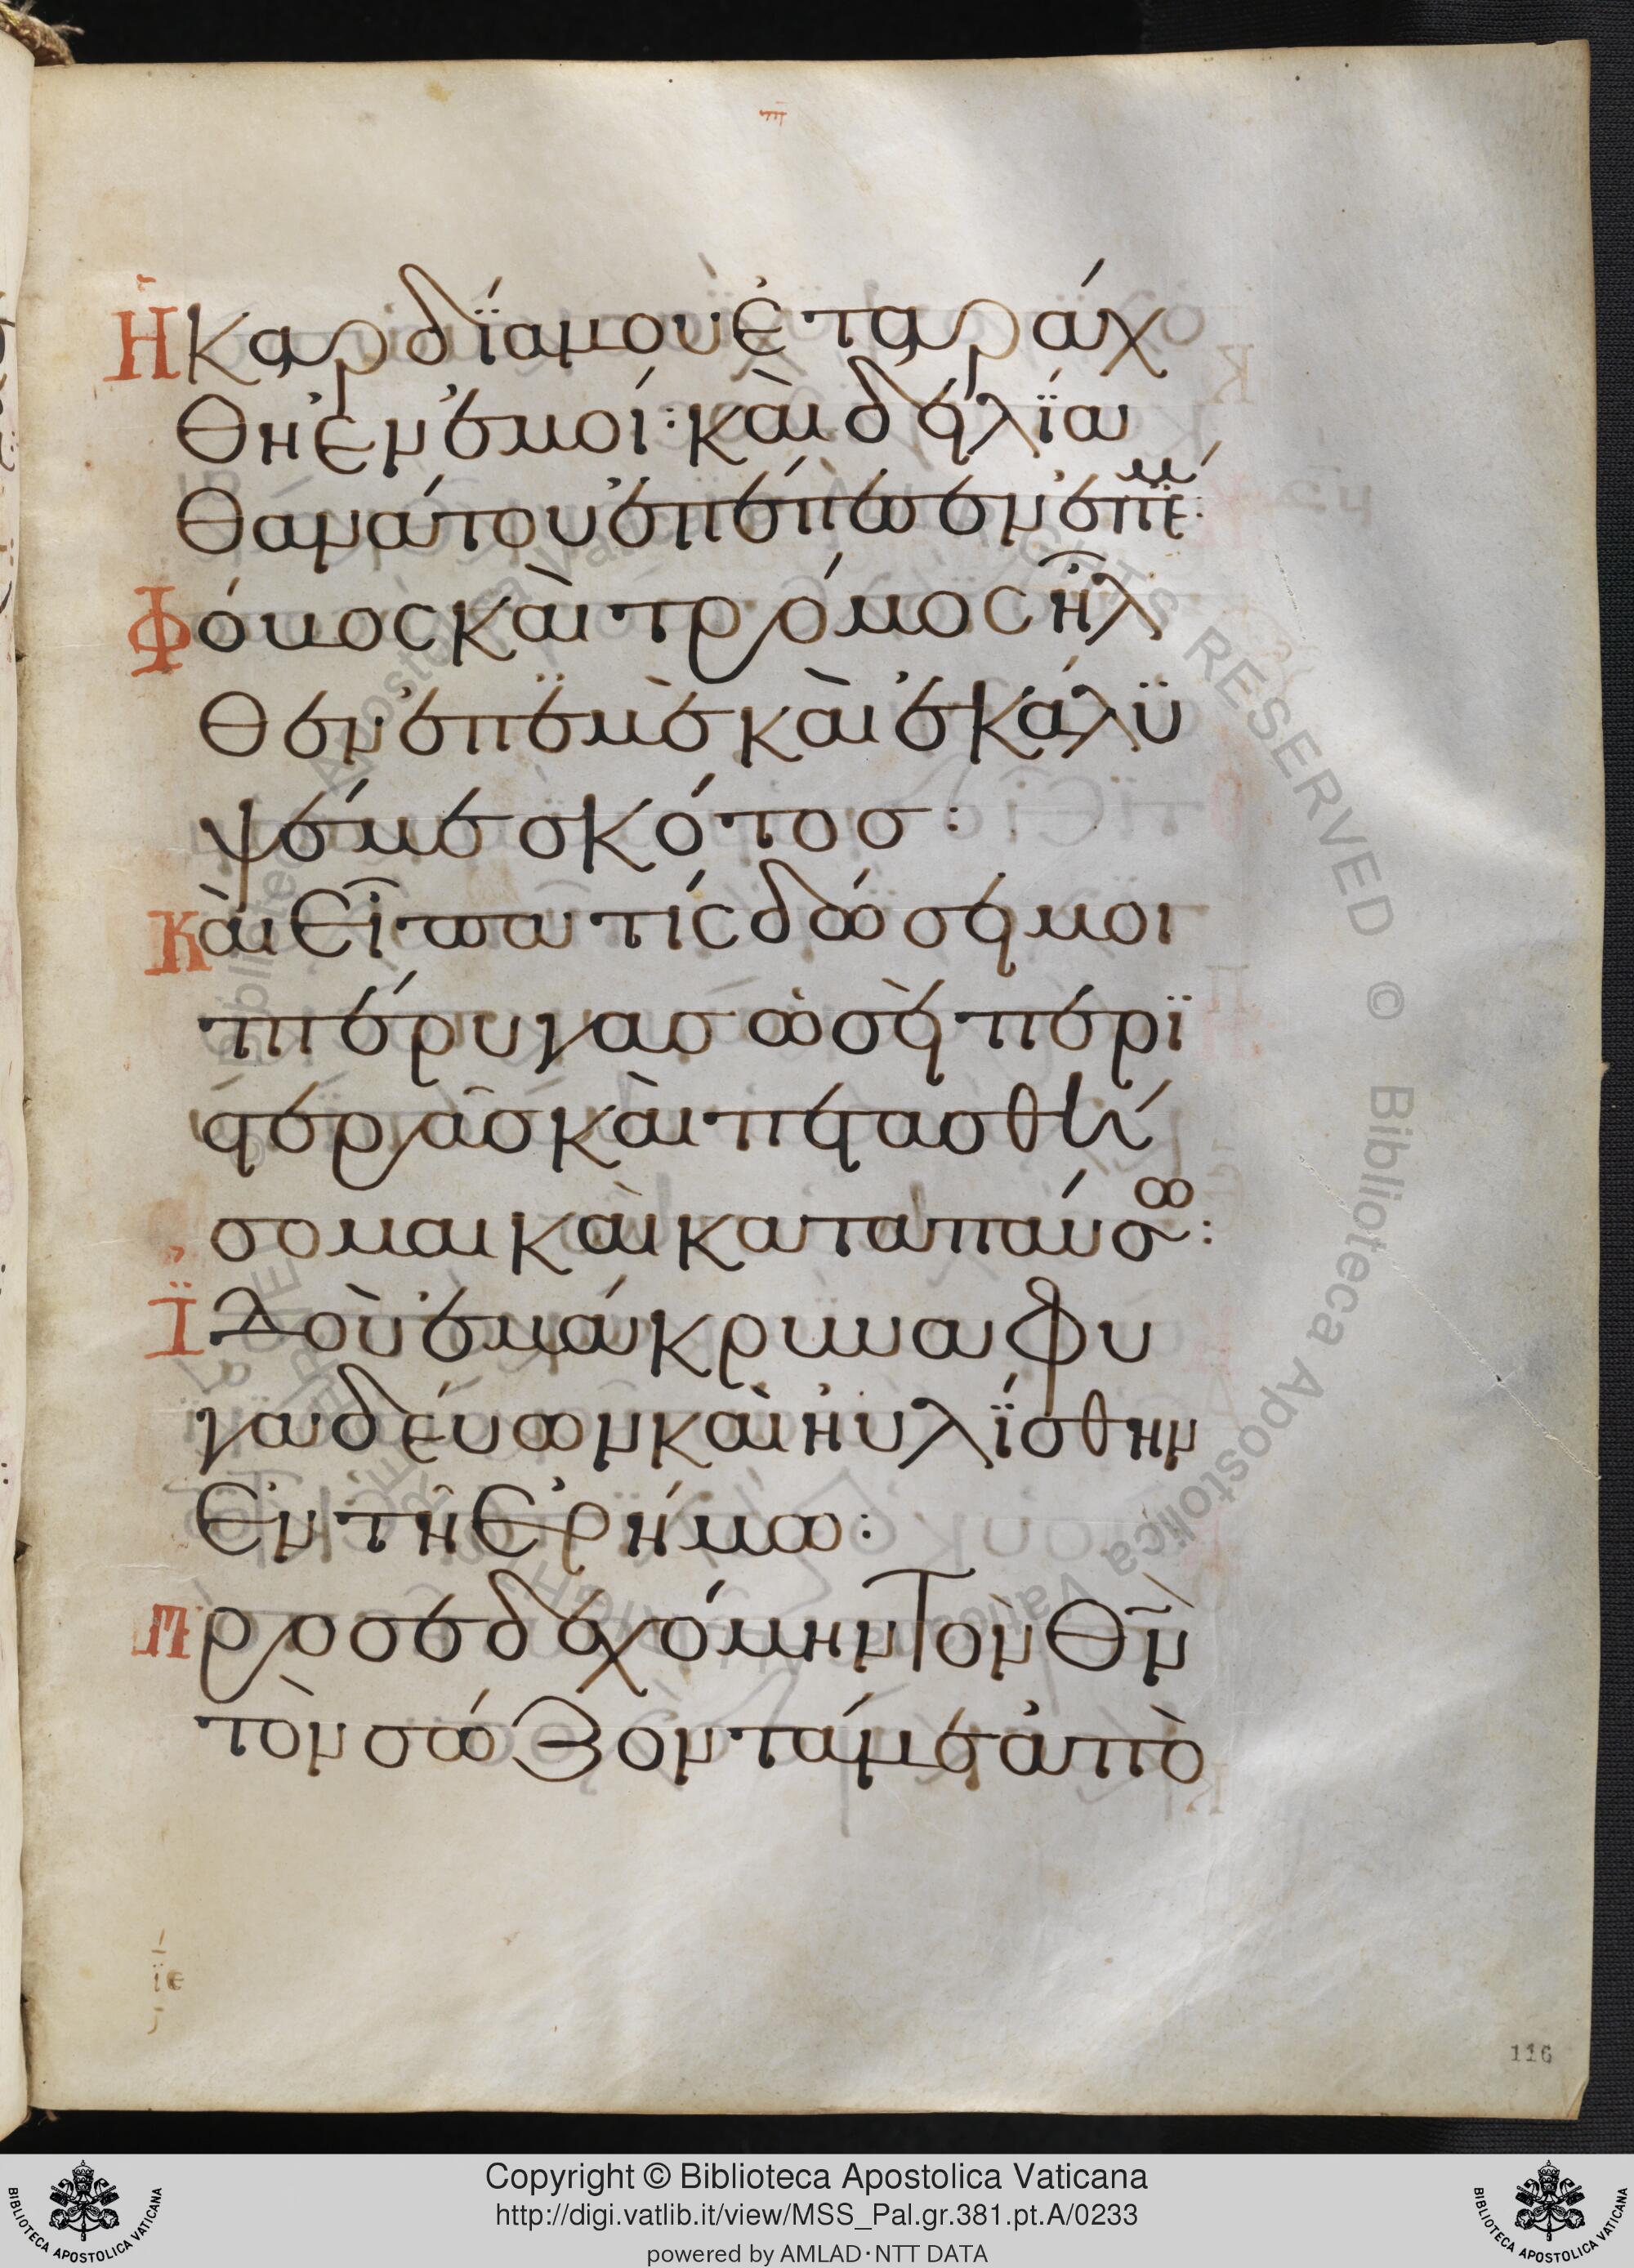 Ἡ καρδΐα μου ἐταράχ
θη ἐν ἐμοί: καὶ δειλΐα
θανάτου ἐπέπεσεν ἐπ ἐμέ:
Φόβος καὶ τρόμος ἦλ
θεν ἐπ ἐμὲ καὶ ἐκάλϋ
ψέ με σκότος:
Καὶ εἶπα τίς δώσει μοι
πτέρυγας ὡσεὶ περϊ
στερᾶς καὶ πετασθή
σομαι καὶ καταπαύσω:
Ϊδοὺ ἐμάκρυνα φυ
γαδεύων καὶ ηὐλΐσθην
ἐν τῆ ἐρήμω:
Προσεδεχόμην τὸν θν̅
τὸν σώζοντά με ἀπὸ
ϊε
116
Copyright © Biblioteca Apostolica Vaticana
http://digi.vatlib.it/view/MSS_Pal.gr.381.pt.A/0233
powered by AMLAD·NTT DATA
BIBLIOTECA APOSTOLICA VATICANA
BIBLIOTECA APOSTOLICA VATICANA